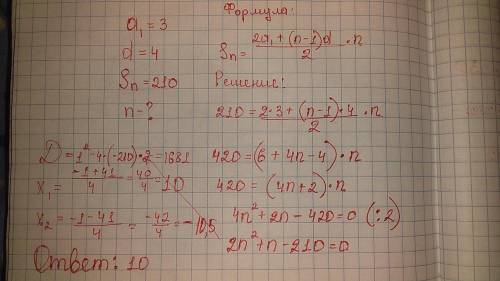 Формула:
a₁ = 3
d = 4
Sₙ = 210
n - ?
Sₙ = (2a₁ + (n-1)d)/2 · n
Решение:
210 = (2·3 + (n-1)·4)/2 · n
420 = (6 + 4n - 4) · n
420 = (4n+2) · n
4n² + 2n - 420 = 0 (:2)
2n² + n - 210 = 0
D = 1² - 4·(-210)·2 = 1681
x₁ = (-1+41)/4 = 40/4 = 10
x₂ = (-1-41)/4 = -42/4 = -10,5
Ответ: 10